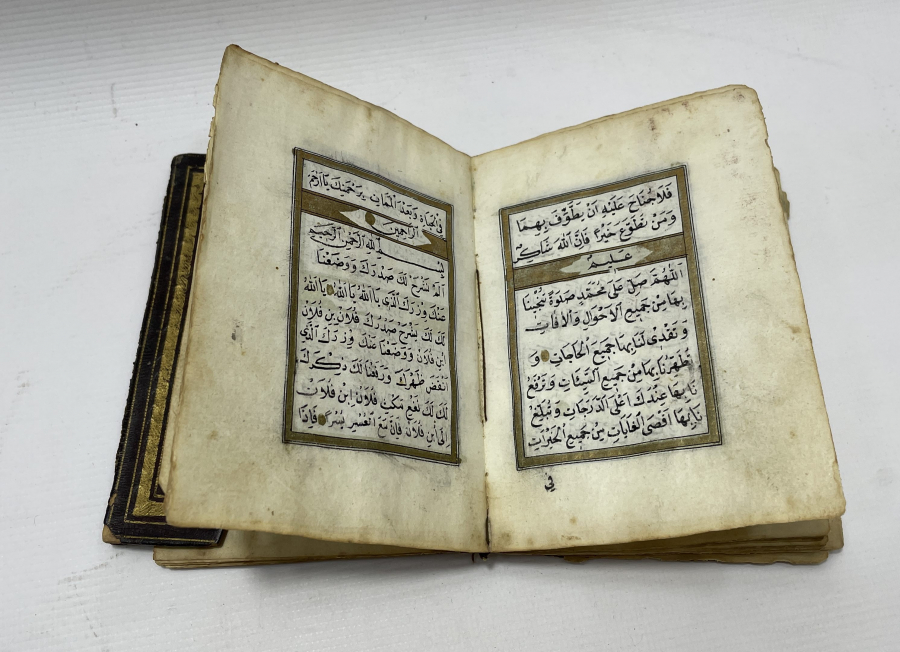 فَلَا جُنَاحَ عَلَيْهِ اَنْ يَطَّوَّفَ بِهِمَا
وَمَنْ تَطَوَّعَ خَيْرًا فَاِنَّ اللهَ شَاكِرٌ
عَلِيمٌ
اَللّٰهُمَّ صَلِّ عَلَى مُحَمَّدٍ صَلٰوةً تُنْجِينَا
بِهَا مِنْ جَمِيعِ الْاَحْوَالِ وَالْاٰفَاتِ
وَتَقْدِى لَنَا بِهَا جَمِيعَ الْحَاجَاتِ وَ
تُطَهِّرُنَا بِهَا مِنْ جَمِيعِ السَّيِّئَاتِ وَتَرْفَعُ
نَا بِهَا عِنْدَكَ اَعْلَى الدَّرَجَاتِ وَتُبَلِّغُ
نَا بِهَا اَقْصَى الْغَايَاتِ مِنْ جَمِيعِ الْخَيْرَاتِ
فِى
فِى الْحَيَاةِ وَبَعْدَ الْمَمَاتِ بِرَحْمَتِكَ يَا اَرْحَمَ
الرَّاحِمِينَ
بِسْمِ اللهِ الرَّحْمٰنِ الرَّحِيمِ
اَلَمْ نَشْرَحْ لَكَ صَدْرَكَ وَوَضَعْنَا
عَنْكَ وِزْرَكَ الَّذِى يَا اَللهُ يَا اَللهُ يَا اَللهُ
لَكَ لَكَ نَشْرَحْ صَدْرَكَ فُلَانِ بْنِ فُلَانْ
ابْنِ فُلَانْ وَوَضَعْنَا عَنْكَ وِزْرَكَ الَّذِى
اَنْقَضَ ظَهْرَكَ وَرَفَعْنَا لَكَ ذِكْرَكَ
لَكَ لَكَ فُلَانْ اِبْنِ فُلَانْ
اِبْنِ فُلَانْ فَاِنَّ مَعَ الْعُسْرِ يُسْرًا فَاِذَا